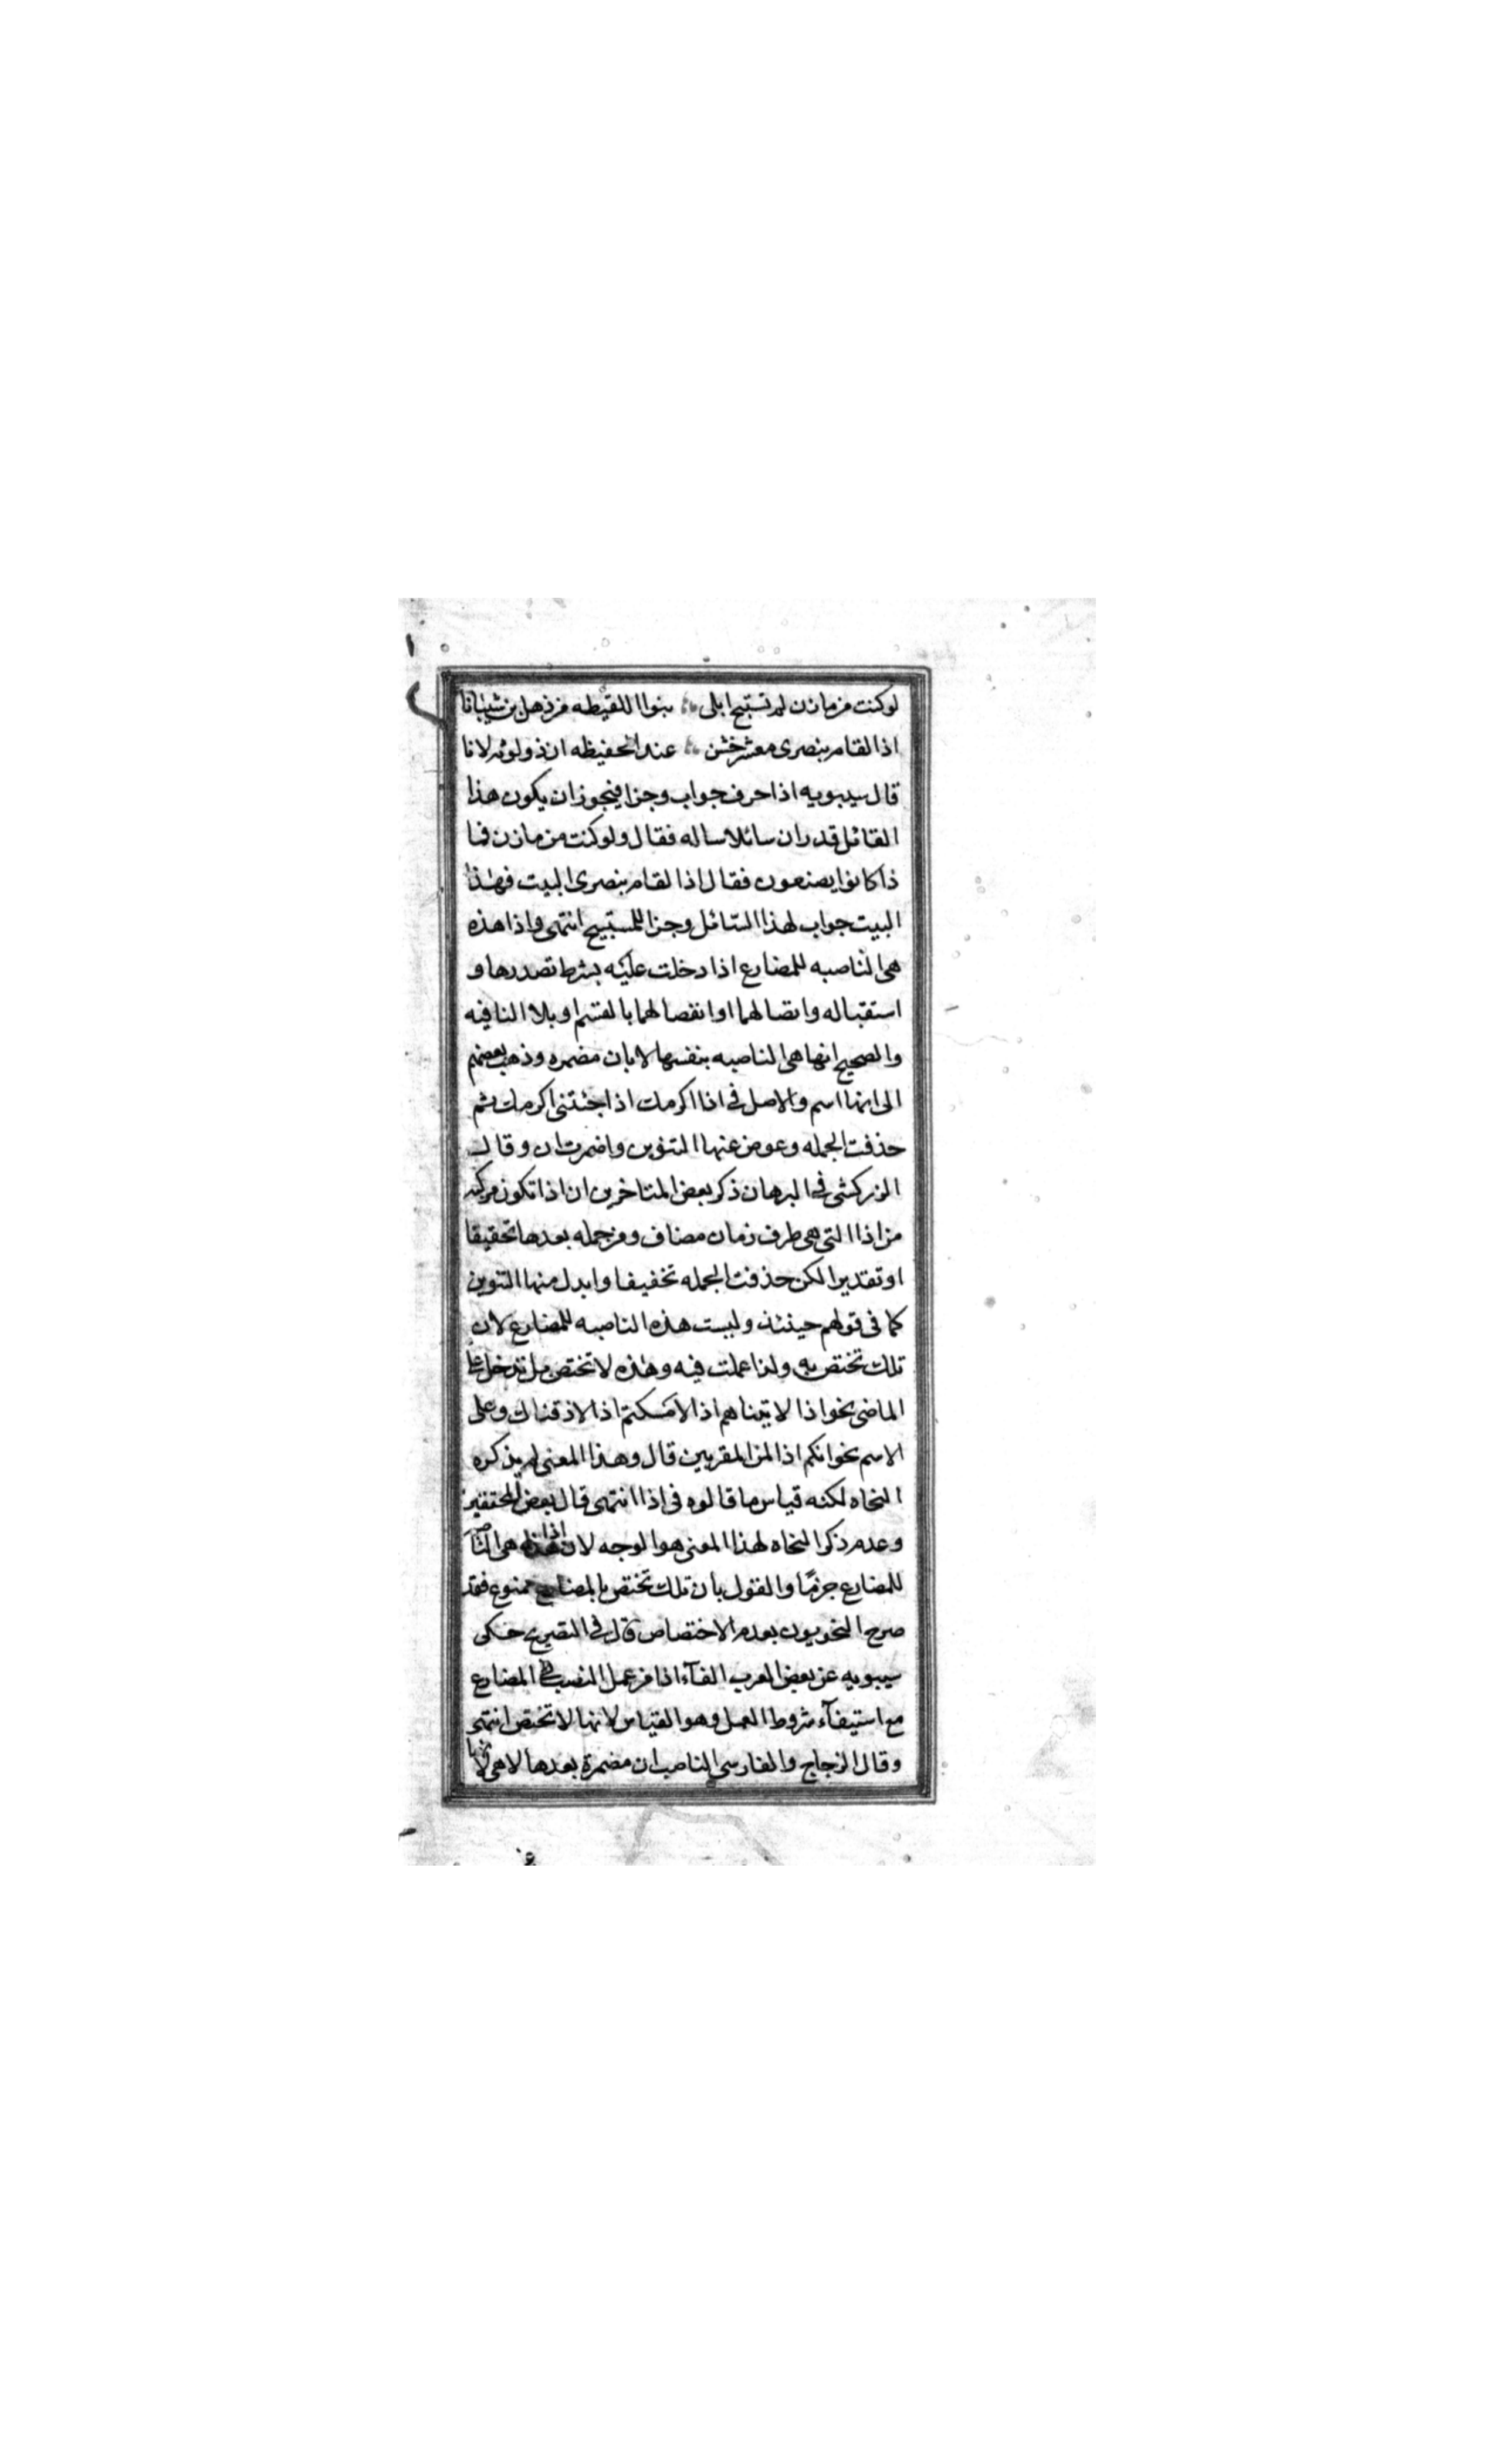 لوكنت من مازن لم تستبح ابلى بنوا اللقيطه من ذهل بن شيبانا
اذا لقام بنصرى معشر خشن عند الحفيظه ان ذو لوثه لانا
قال سيبويه اذا حرف جواب وجزا فيجوز ان يكون هذا
القائل قدر ان سائلا ساله فقال ولو كنت من مازن فما
ذا كانوا يصنعون فقال اذا لقام بنصرى البيت فهذا
البيت جواب لهذا السائل وجزا للمستبيح انتهى واذا هذه
هى الناصبه للمضارع اذا دخلت عليه بشرط تصدرها و
استقباله واتصالهما او انفصالهما بالقسم او بلا النافيه
والصحيح انها هى الناصبه بنفسها لا بان مضمره وذهب بعضهم
الى انها اسم والاصل فى اذا اكرمك اذا جئتنى اكرمك ثم
حذفت الجمله وعوض عنها التنوين واضمرت ان وقال
الزركشى فى البرهان ذكر بعض المتاخرين ان اذا تكون مركبه
من اذا التى هى ظرف زمان مضاف ومن جمله بعدها تحقيقا
او تقديرا لكن حذفت الجمله تخفيفا وابدل منها التنوين
كما فى قولهم حينئذ وليست هذه الناصبه للمضارع لان
تلك تختص به ولذا عملت فيه وهذه لا تختص بل تدخل على
الماضى نحو اذا لاتيناهم اذا لامسكتم اذا لاذقناك وعلى
الاسم نحو انكم اذا لمن المقربين قال وهذا المعنى لم يذكره
النحاه لكنه قياس ما قالوه فى اذا انتهى قال بعض المحققين
وعدم ذكر النحاه لهذا المعنى هو الوجه لان اذا هذه هى الناصبه
للمضارع جزمًا والقول بان تلك تختص بالمضارع ممنوع فقد
صرح النحويون بعدم الاختصاص قال فى التصريح حكى
سيبويه عن بعض العرب الغآء اذا من عمل النصب فى المضارع
مع استيفآء شروط العمل وهو القياس لانها لا تختص انتهى
وقال الزجاج والفارسى الناصب ان مضمرة بعدها لا هى لانها